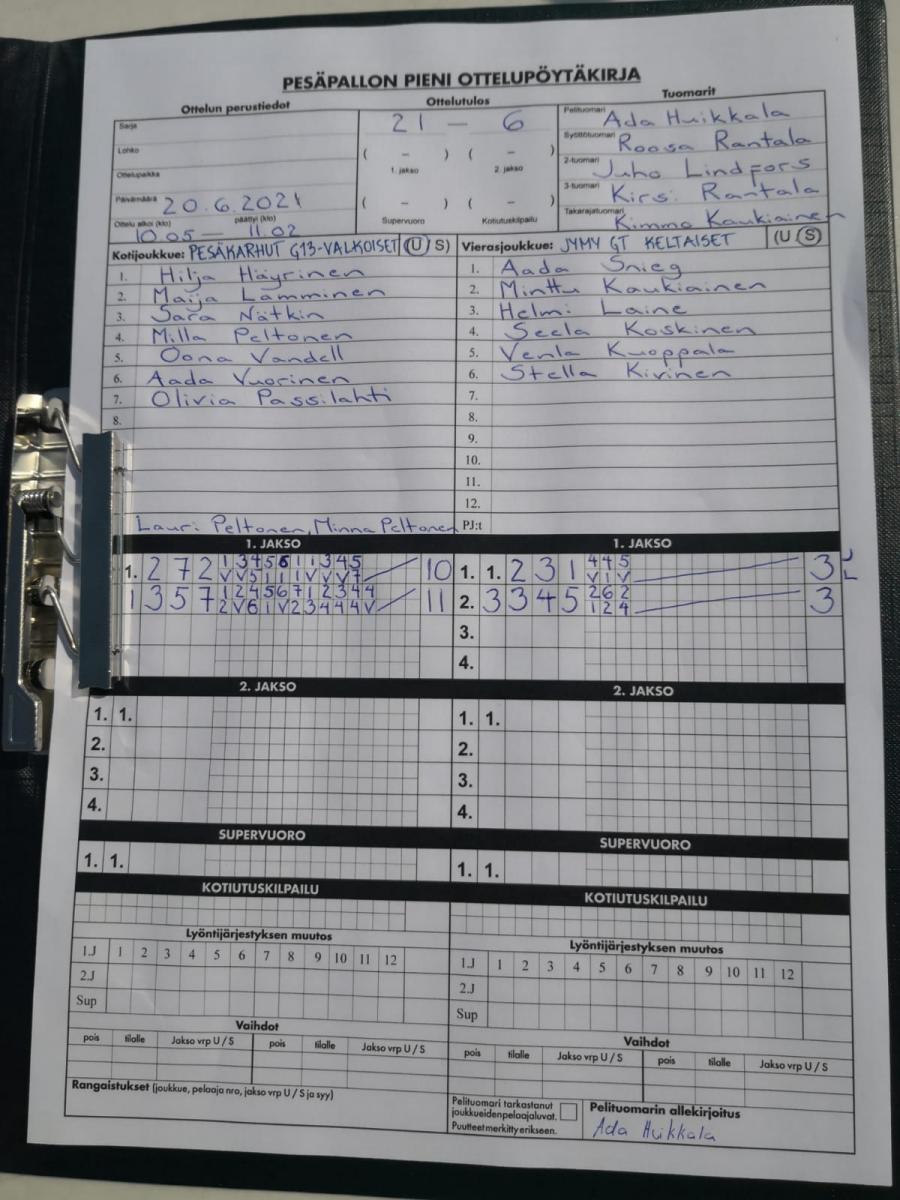 PESÄPALLON PIENI OTTELUPÖYTÄKIRJA
Ottelun perustiedot
Sarja
Lohko
Ottelupaikka
Päivämäärä 20.6.2021
Ottelu alkoi (klo) päättyi (klo)
10.05 — 11.02
Ottelutulos
21 — 6
( – ) ( – )
1. jakso 2. jakso
( – ) ( – )
Supervuoro Kotiutuskilpailu
Tuomarit
Pelituomari Ada Huikkala
Syöttötuomari Roosa Rantala
2-tuomari Juho Lindfors
3-tuomari Kirsi Rantala
Takarajatuomari Kimmo Kaukiainen
Kotijoukkue: PESÄKARHUT G13-VALKOISET (U S)
1. Hilja Häyrinen
2. Maija Lamminen
3. Sara Nätkin
4. Milla Peltonen
5. Oona Vandell
6. Aada Vuorinen
7. Olivia Passilahti
8.
Lauri Peltonen, Minna Peltonen
Vierasjoukkue: JYMY GT KELTAISET (U S)
1. Aada Snieg
2. Minttu Kaukiainen
3. Helmi Laine
4. Seela Koskinen
5. Venla Kuoppala
6. Stella Kivinen
7.
8.
9.
10.
11.
12.
PJ:t
1. JAKSO
1. 2 7 2 1 3 4 5 6 1 1 3 4 5 10
V V 5 1 1 1 V V V 7
1 3 5 7 1 2 4 5 6 7 1 2 3 4 4 11
2 V 6 1 V 2 3 4 4 4 V
1. JAKSO
1. 1. 2 3 1 4 4 5 3
V 1 V
2. 3 3 4 5 2 6 2 3
1 2 4
3.
4.
2. JAKSO
1. 1.
2.
3.
4.
2. JAKSO
1. 1.
2.
3.
4.
SUPERVUORO
1. 1.
SUPERVUORO
1. 1.
KOTIUTUSKILPAILU
KOTIUTUSKILPAILU
Lyöntijärjestyksen muutos
1.J 1 2 3 4 5 6 7 8 9 10 11 12
2.J
Sup
Lyöntijärjestyksen muutos
1.J 1 2 3 4 5 6 7 8 9 10 11 12
2.J
Sup
Vaihdot
pois tilalle Jakso vrp U / S pois tilalle Jakso vrp U / S
Vaihdot
pois tilalle Jakso vrp U / S pois tilalle Jakso vrp U / S
Rangaistukset (joukkue, pelaaja nro, jakso vrp U / S ja syy)
Pelituomari tarkastanut
joukkueidenpelaajaluvat.
Puutteet merkitty erikseen.
Pelituomarin allekirjoitus
Ada Huikkala